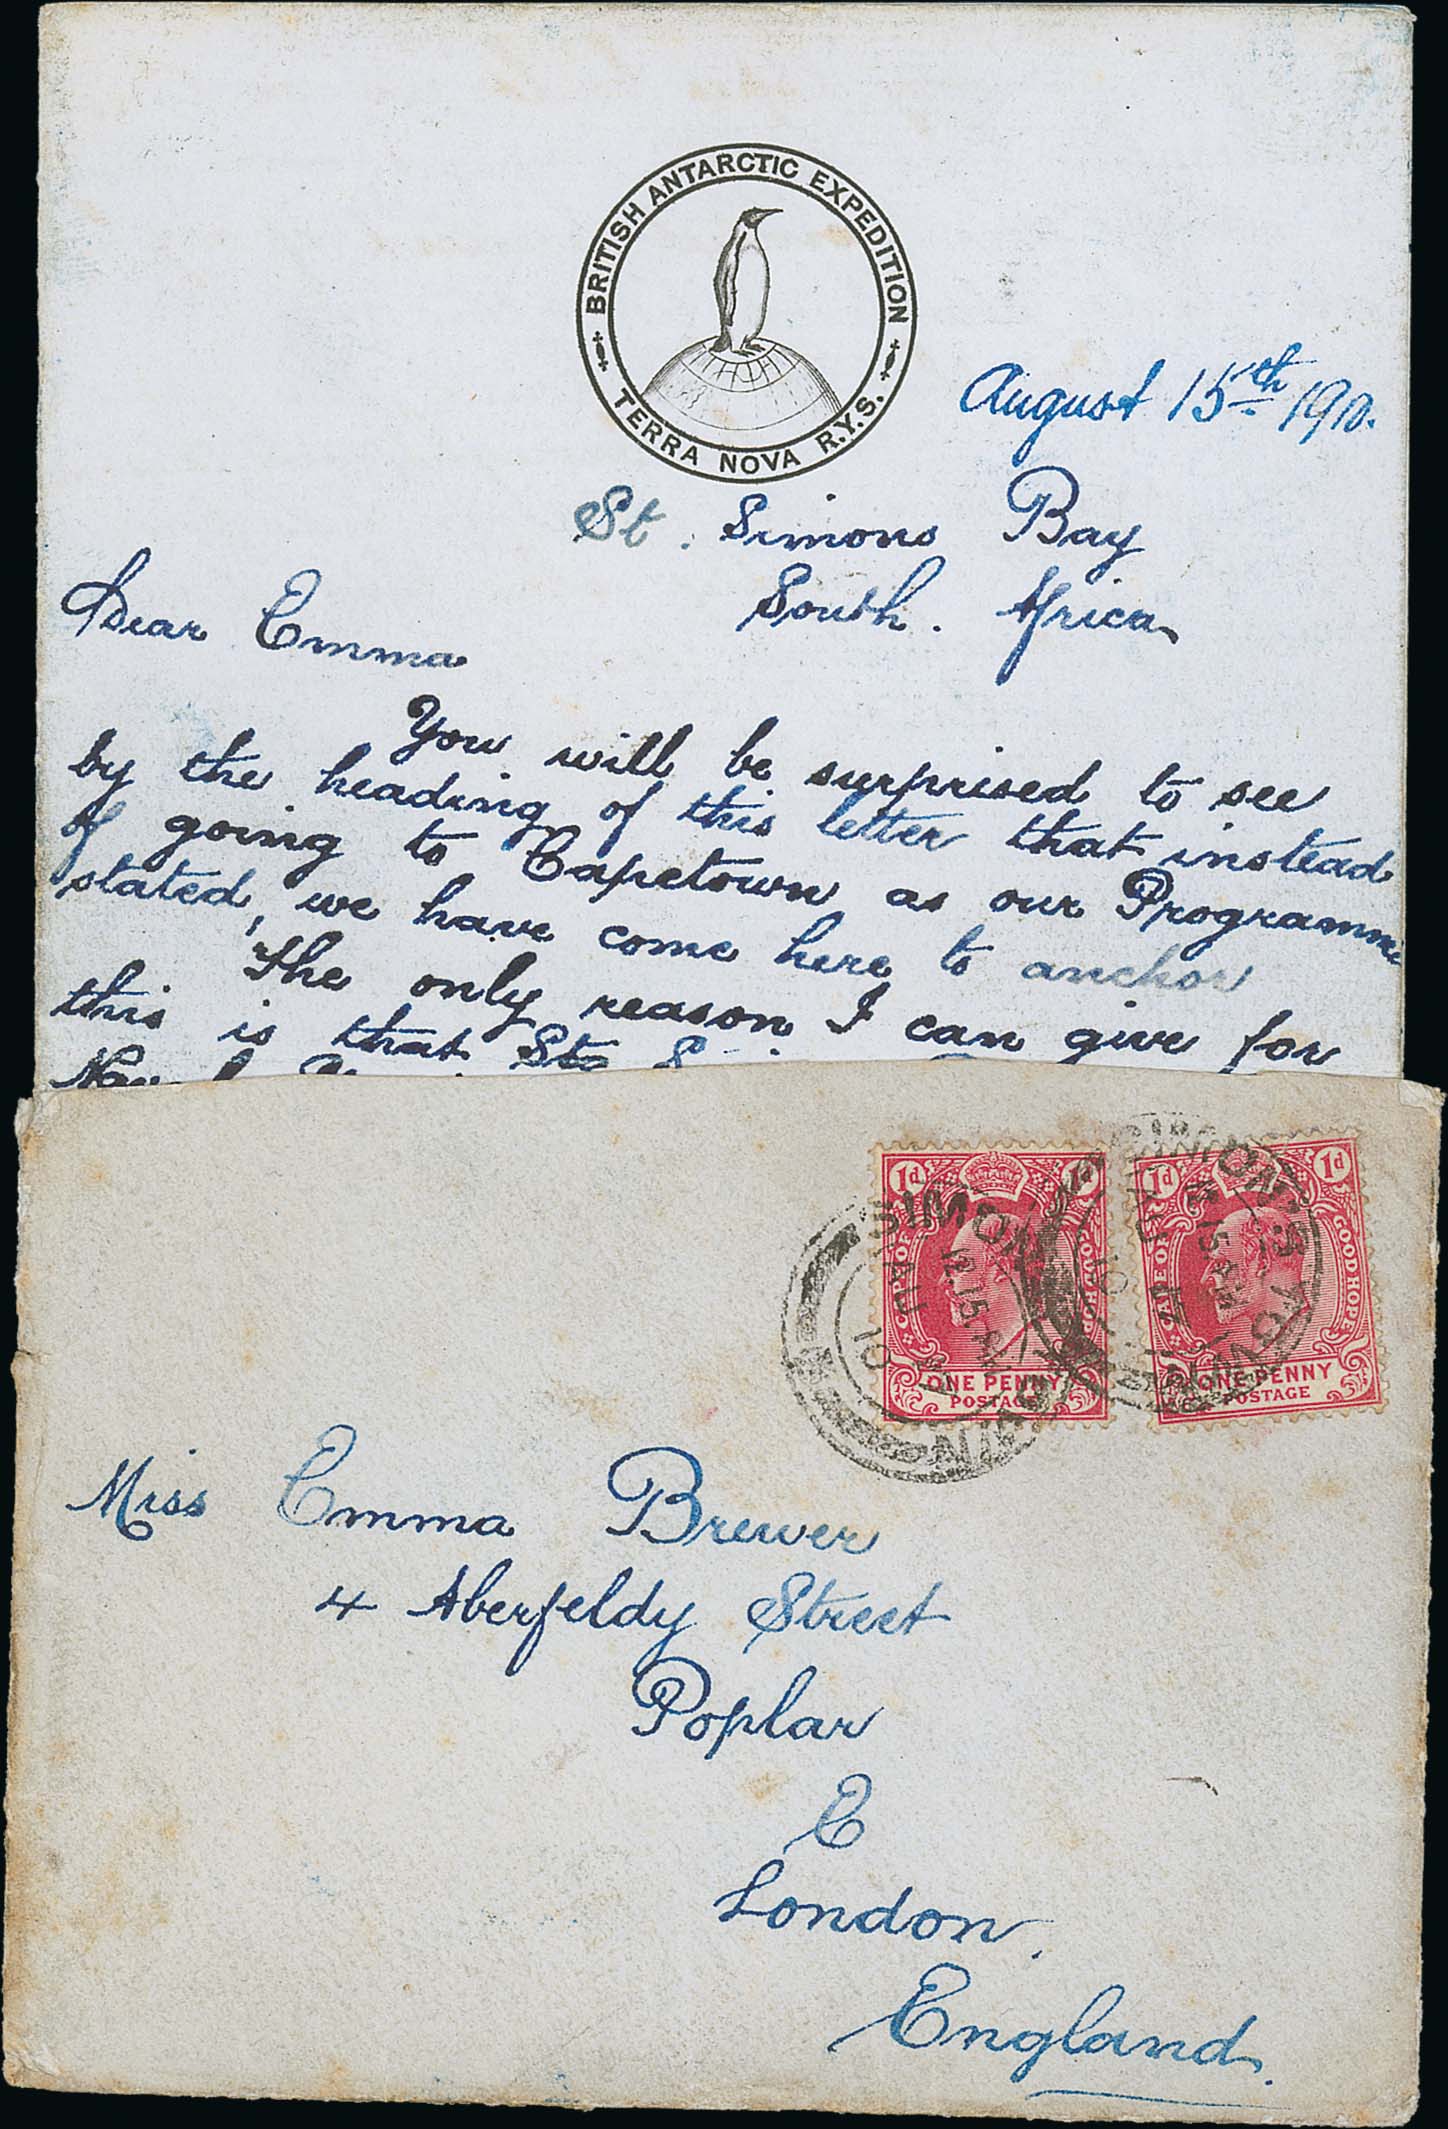 BRITISH ANTARCTIC EXPEDITION
TERRA NOVA R.Y.S.
August 15th 1910.
St. Simons Bay
South. Africa
Dear Emma
You will be surprised to see
by the heading of this letter that instead
of going to Capetown as our Programme
stated, we have come here to anchor
The only reason I can give for
this is that St
1d
CAPE OF GOOD HOPE
ONE PENNY
POSTAGE
1d 1d
CAPE OF GOOD HOPE
ONE PENNY
POSTAGE
SIMON'S TOWN
12.15 PM
AU
10
Miss Emma Brewer
4 Aberfeldy Street
Poplar
E
London.
England.